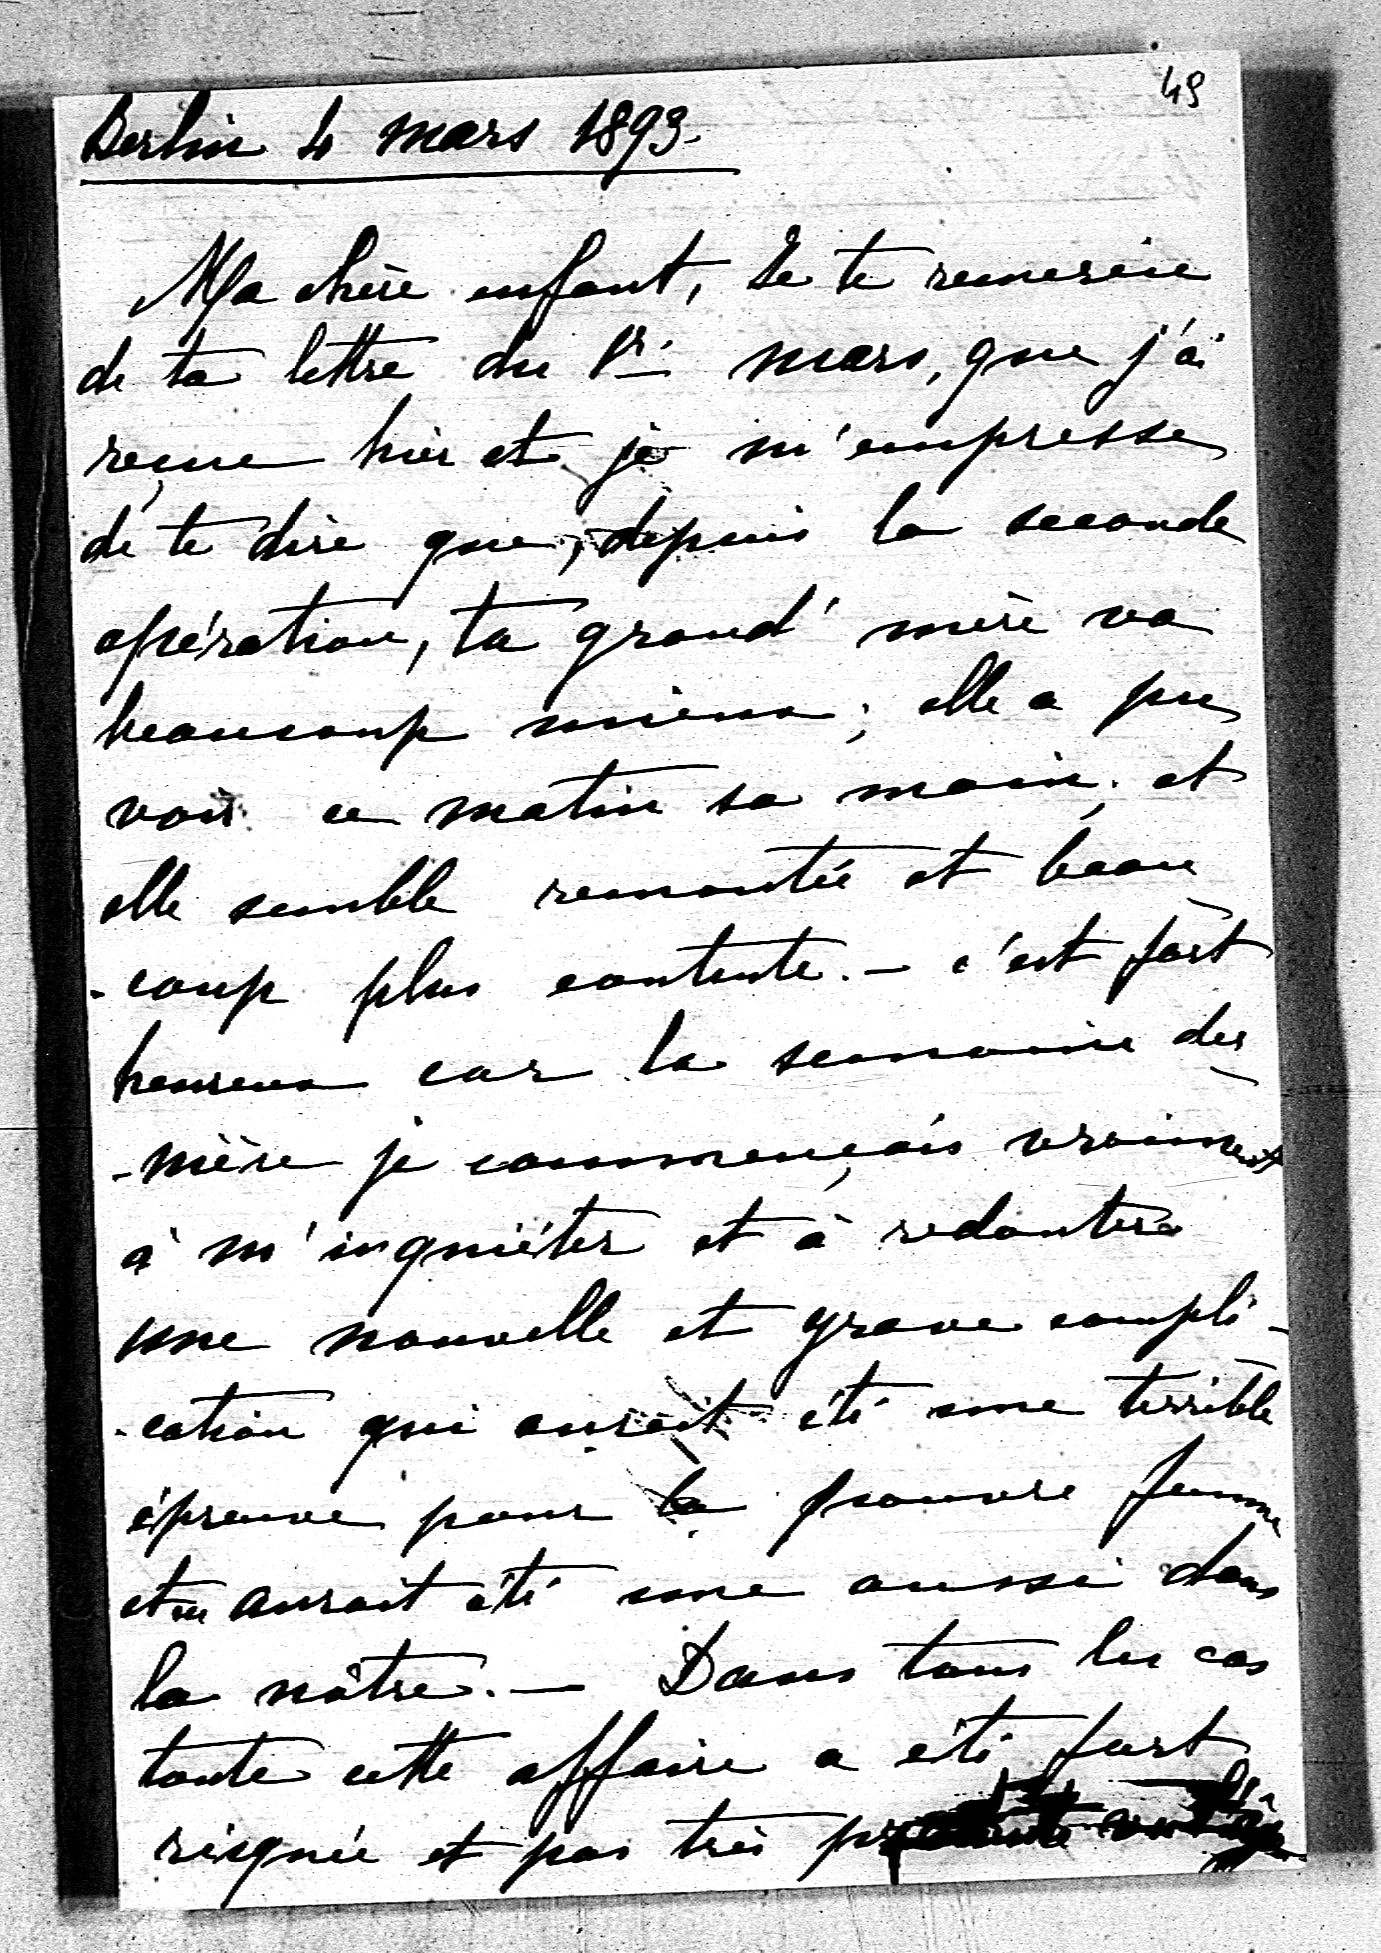 49
Berlin 4 mars 1893.
Ma chère enfant, Je te remercie
de ta lettre du 1er mars, que j'ai
reçue hier et je m'empresse
de te dire que, depuis la seconde
opération, ta grand' mère va
beaucoup mieux; elle a pu
voir ce matin sa main; et
elle semble remontée et beau
-coup plus contente. — c'est fort
heureux car la semaine der
-nière je commençais vraiment
à m'inquiéter et à redouter
une nouvelle et grave compli-
-cation qui aurait été une terrible
épreuve pour la pauvre femme
et en aurait été une aussi dans
la nôtre. — Dans tous les cas
toute cette affaire a été fort
risquée et pas très